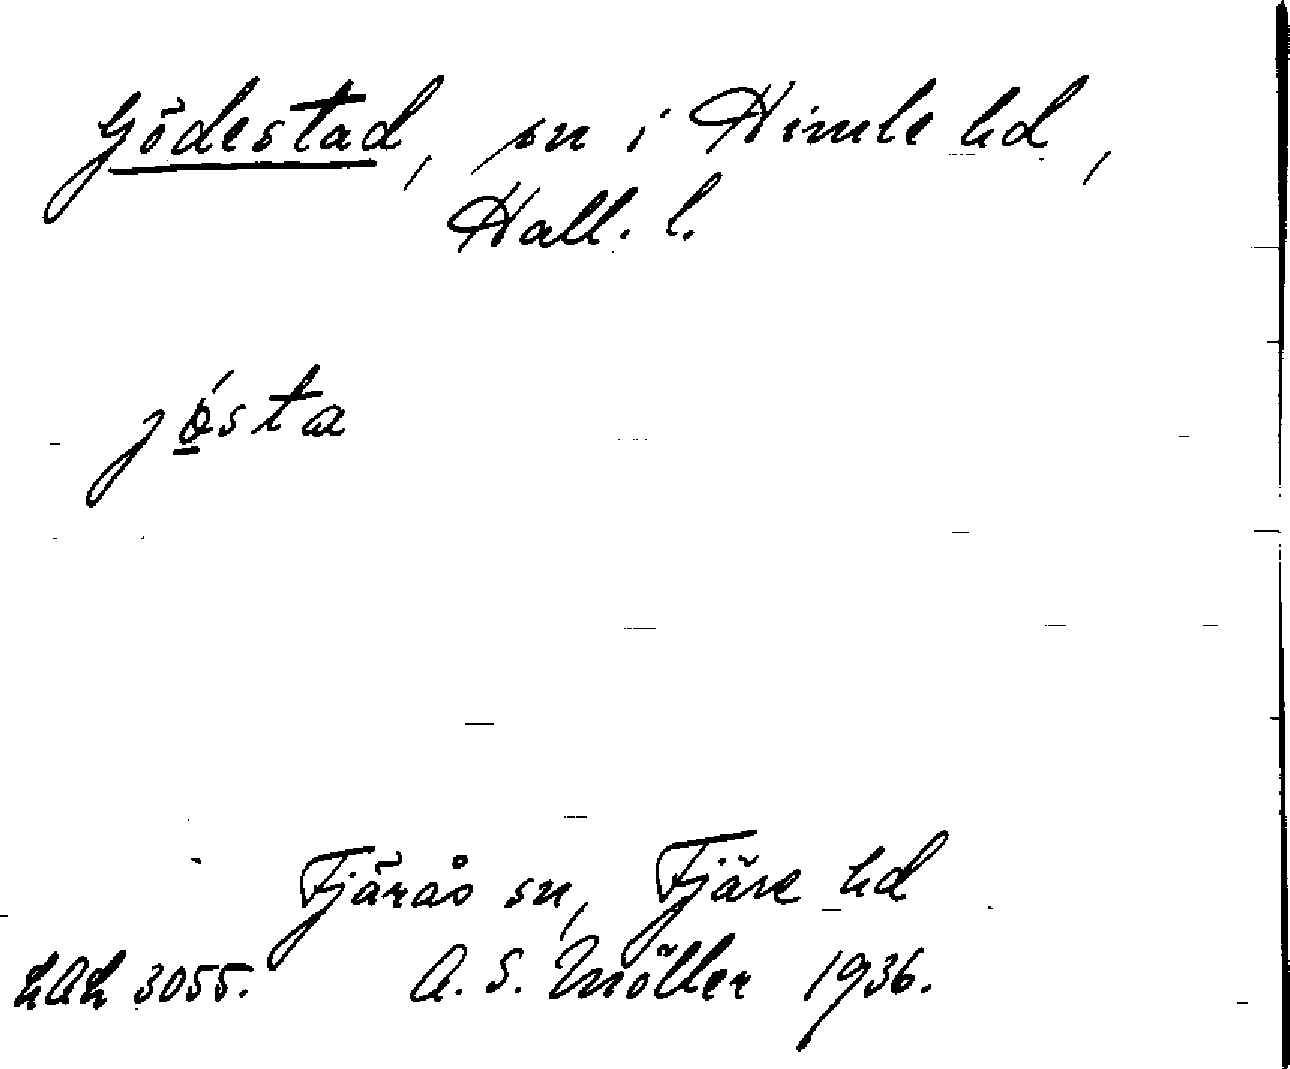 Gödestad, sn i Himle hd,
Hall. l.
jǿ̱sta
Fjärås sn, Fjäre hd
LAL 3055. A. S. Möller 1936.